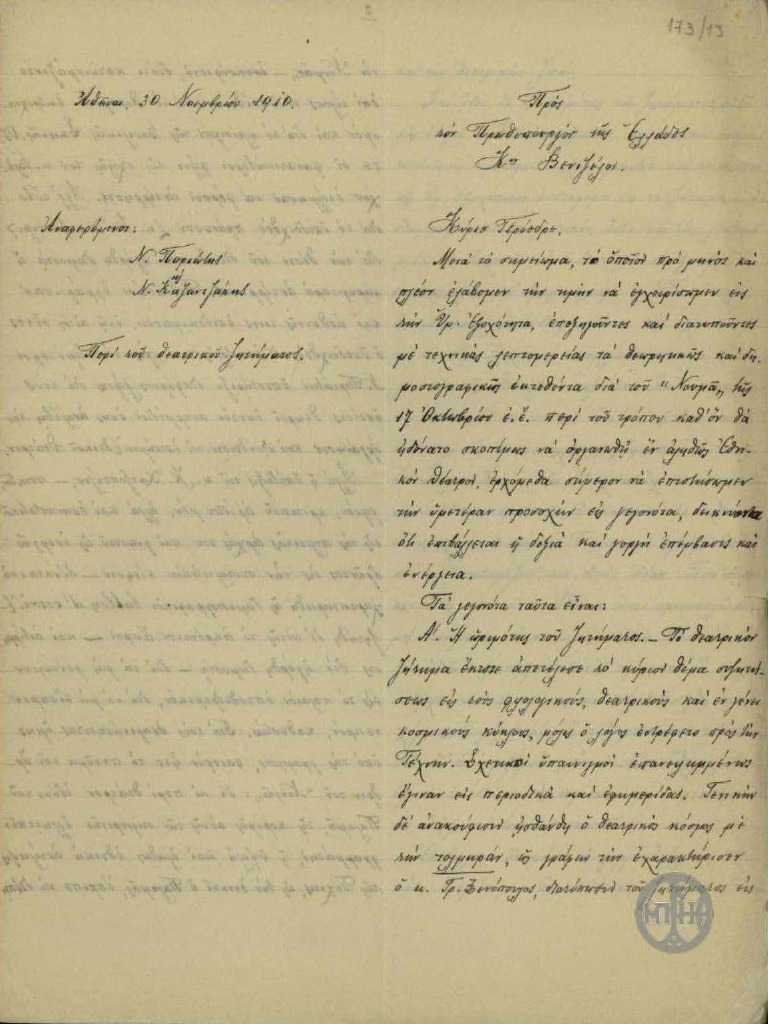 173/13
Ἀθῆναι, 30 Νοεμβρίου 1910.
Πρὸς
τὸν Πρωθυπουργὸν τῆς Ἑλλάδος
Κον Βενιζέλον.
Ἀναφερόμενοι:
Ν. Ποριώτης
καὶ
Ν. Καζαντζάκης
Περὶ τοῦ θεατρικοῦ ζητήματος.
Κύριε Πρόεδρε,
Μετὰ τὸ σημείωμα, τὸ ὁποῖον πρὸ μηνὸς καὶ
πλέον ἐλάβομεν τὴν τιμὴν νὰ ἐγχειρίσωμεν εἰς
τὴν Ὑμ. Ἐξοχότητα, ἐπεξηγοῦντες καὶ διατυποῦντες
μὲ τεχνικὰς λεπτομερείας τὰ θεωρητικῶς καὶ δη-
μοσιογραφικῶς ἐκτεθέντα διὰ τοῦ "Νουμᾶ" τῆς
17 Ὀκτωβρίου ἐ.ἔ. περὶ τοῦ τρόπου καθ' ὃν θὰ
ἠδύνατο σκοπίμως νὰ ὀργανωθῇ ἓν ἀληθῶς Ἐθνι-
κὸν Θέατρον, ἐρχόμεθα σήμερον νὰ ἐπιστήσωμεν
τὴν ὑμετέραν προσοχὴν εἰς γεγονότα, δεικνύοντα
ὅτι ἐπιβάλλεται ἡ δεξιὰ καὶ γοργὴ ἐπέμβασις καὶ
ἐνέργεια.
Τὰ γεγονότα ταῦτα εἶναι:
Α'. Ἡ ὡριμότης τοῦ ζητήματος. — Τὸ θεατρικὸν
ζήτημα ἔκτοτε ἀπετέλεσε τὸ κύριον θέμα συζητή-
σεως εἰς τοὺς φιλολογικούς, θεατρικοὺς καὶ ἐν γένει
κοσμικοὺς κύκλους, μόλις ὁ λόγος ἐστρέφετο πρὸς τὴν
Τέχνην. Σχετικοὶ ὑπαινιγμοὶ ἐπανειλημμένως
ἔγιναν εἰς περιοδικὰ καὶ ἐφημερίδας. Γενικὴν
δὲ ἀνακούφισιν ᾐσθάνθη ὁ θεατρικὸς κόσμος μὲ
τὴν τολμηράν, ὡς γράφων τὴν ἐχαρακτήρισεν
ὁ κ. Γρ. Ξενόπουλος, διατύπωσιν τοῦ ζητήματος εἰς